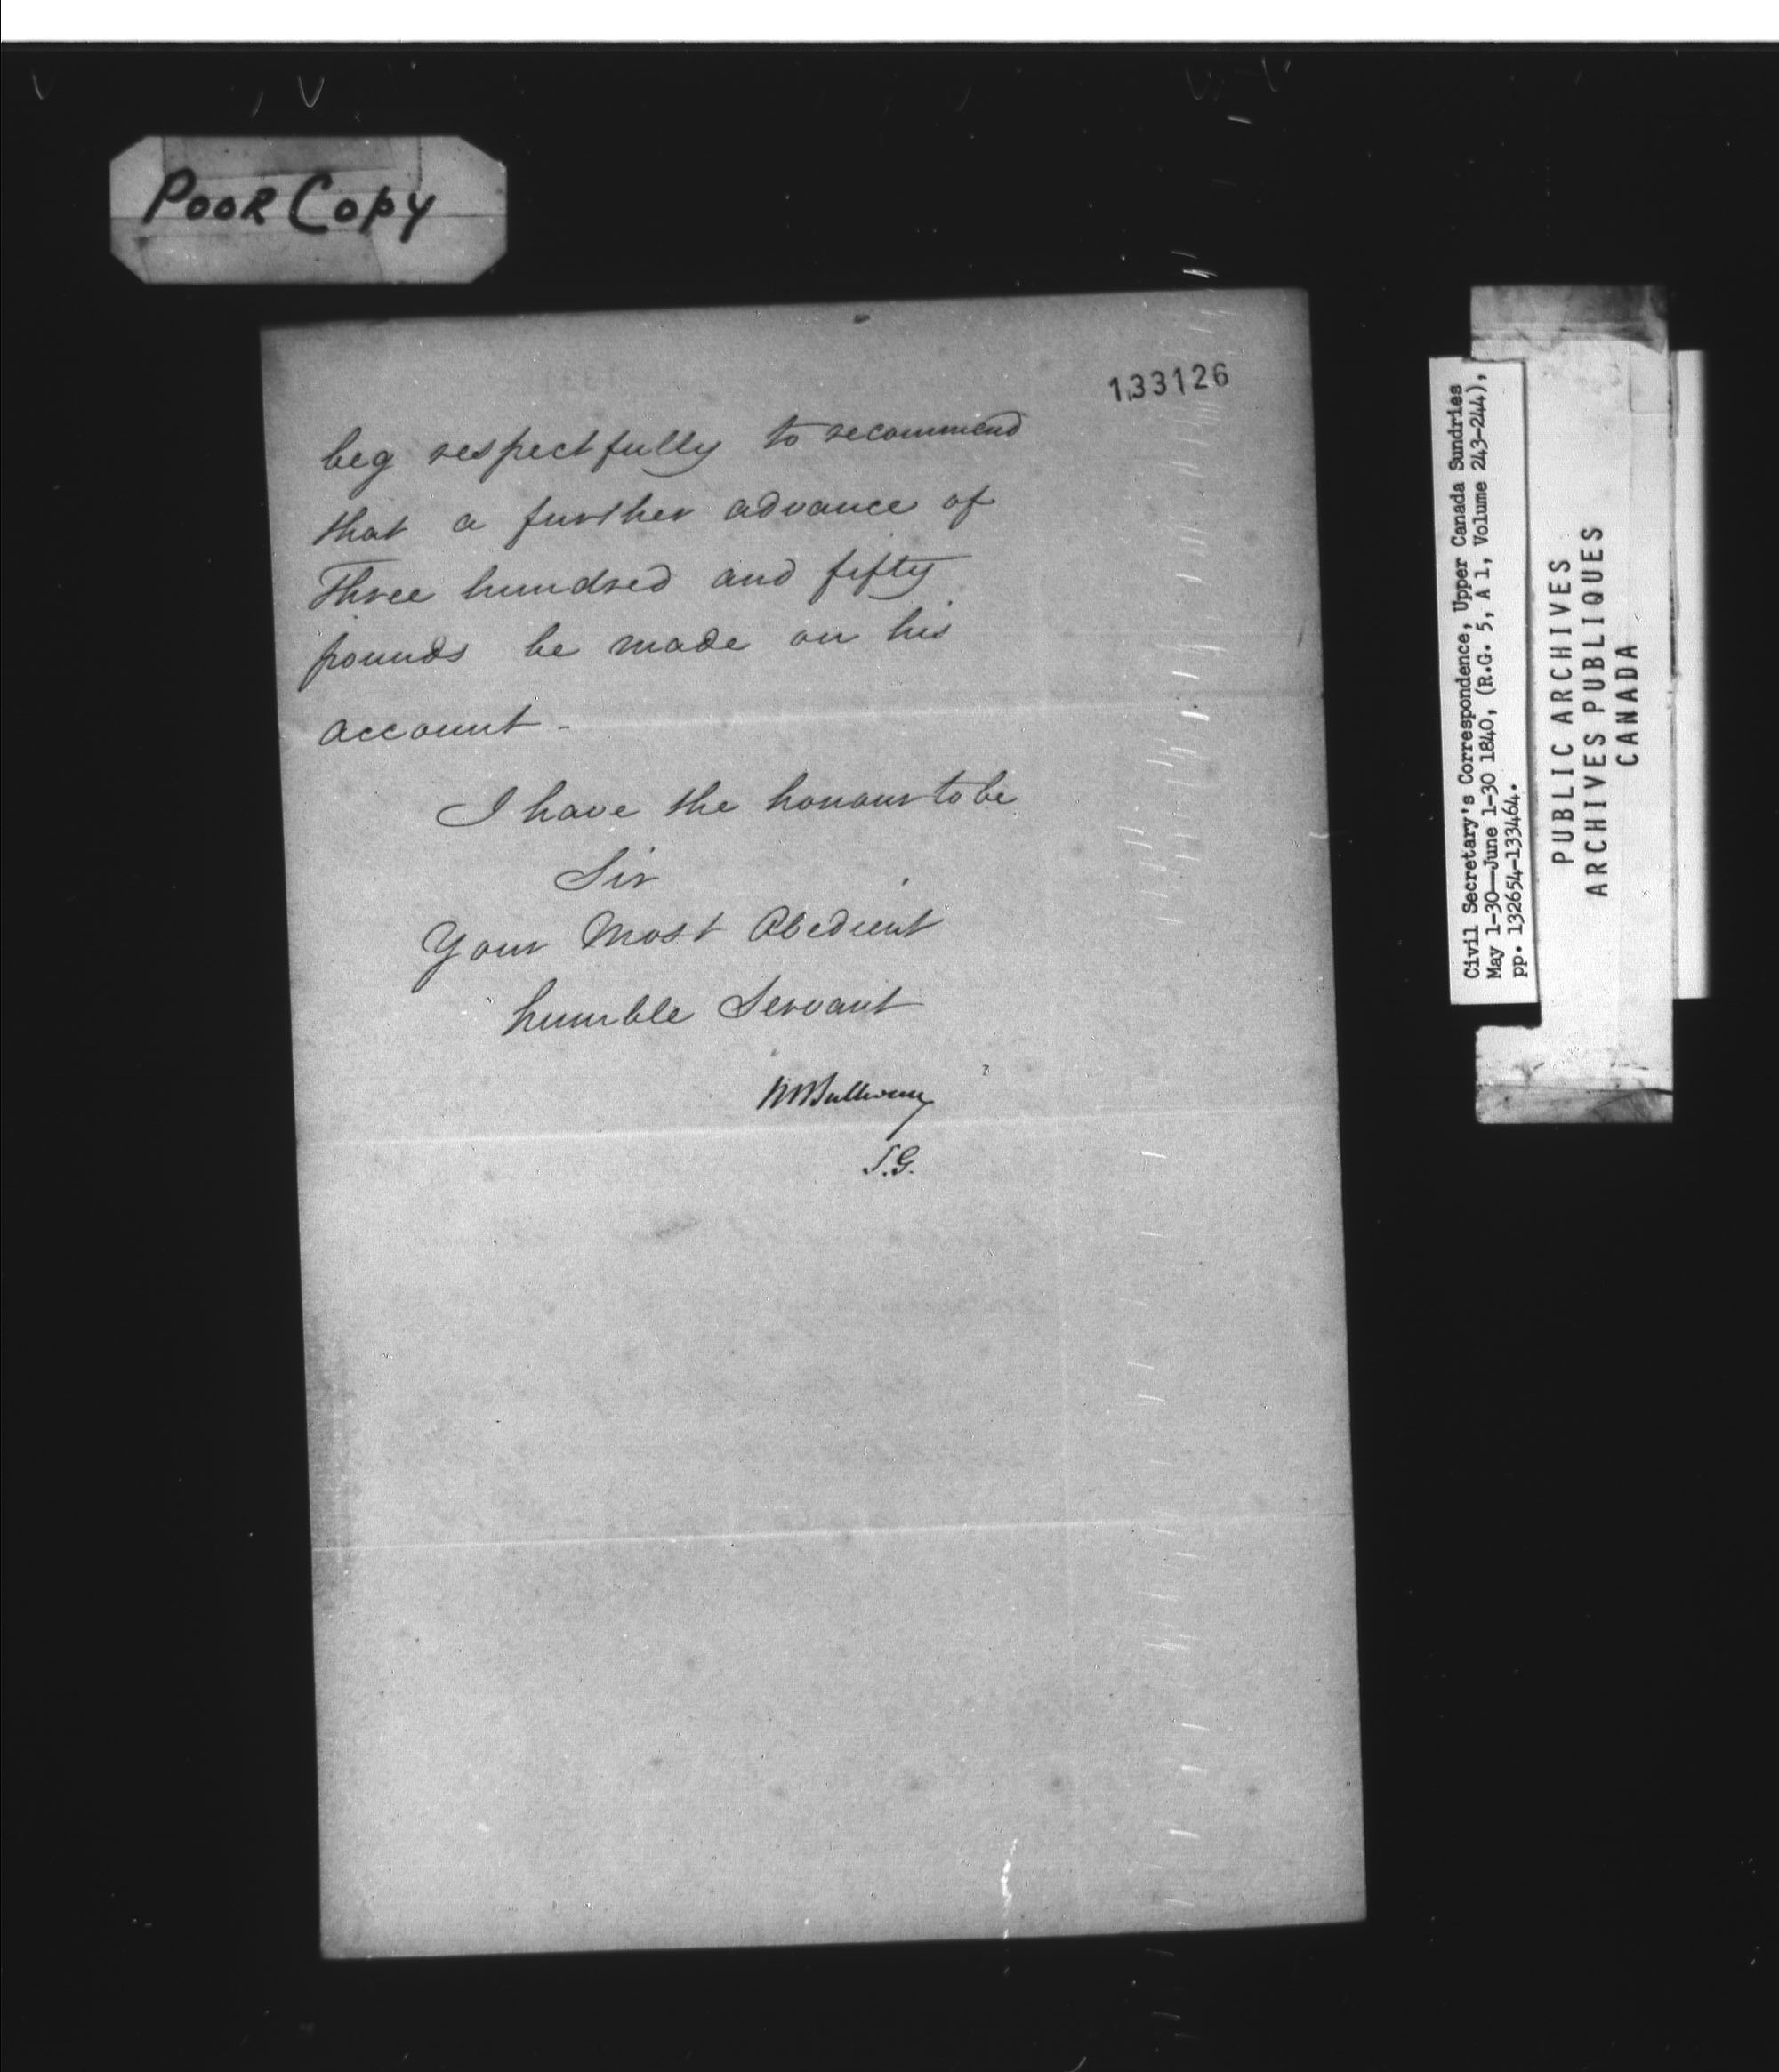 POOR COPY
133126
beg respectfully to recommend
that a further advance of
Three hundred and fifty
pounds be made on his
account -
I have the honour to be
Sir
Your Most Obedient
humble Servant
S.G.
Civil Secretary's Correspondence, Upper Canada Sundries
May 1-30—June 1-30 1840, (R.G. 5, A 1, Volume 243-244),
pp. 132654-133464.
PUBLIC ARCHIVES
ARCHIVES PUBLIQUES
CANADA